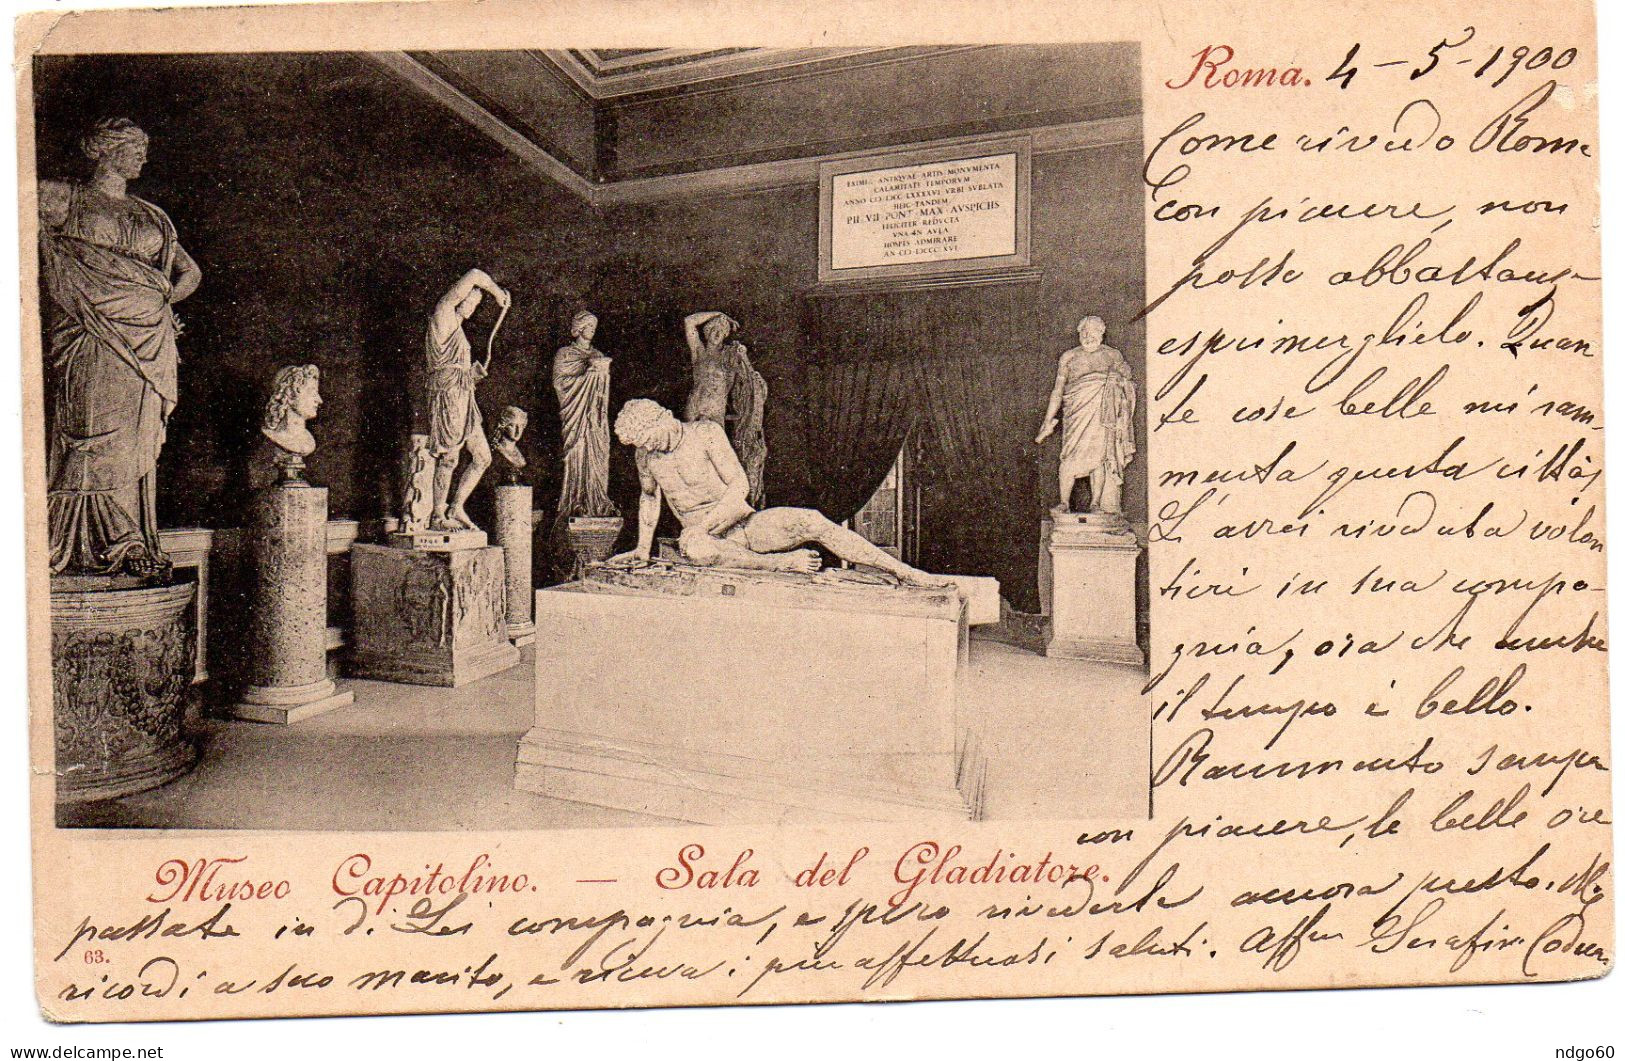 Roma. 4-5-1900
Come rivedo Roma
con piacere, non
posso abbastanz-
esprimerglielo. Quan
te cose belle mi ram-
menta questa città,
L'avrei riveduta volon
tieri in sua compa-
gnia, ora che anche
il tempo è bello.
Rammento sempre
con piacere, le belle ore
passate in di Lei compagnia, e spero rivederle ancora presto. Mi
ricordi a suo marito, e riceva i più affettuosi saluti. Aff
EXIMIA ANTIQVAE ARTIS MONVMENTA
CALAMITATE TEMPORVM
VRBI SVBLATA
HEIC TANDEM
PII VII PONT MAX AVSPICIIS
FELICITER REDVCTA
VNA IN AVLA
HOSPES ADMIRARE
Museo Capitolino. — Sala del Gladiatore.
63.
ndgo60